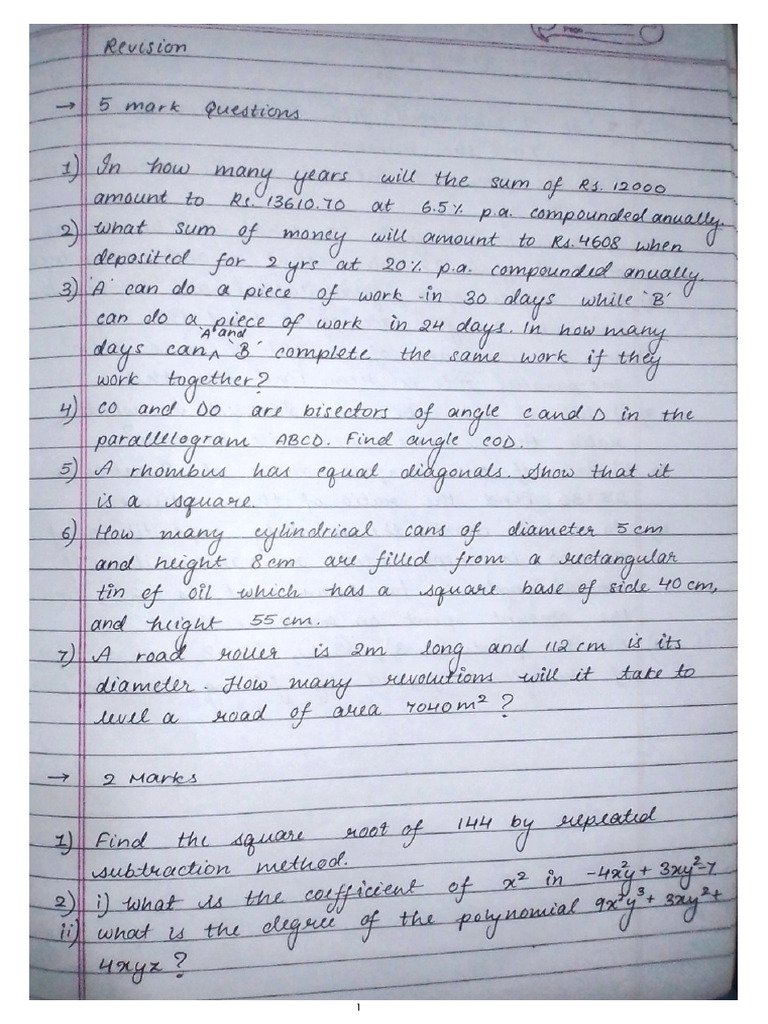 Revision
→ 5 mark Questions
1) In how many years will the sum of Rs. 12000
amount to Rs. 13610.70 at 6.5% p.a. compounded anually.
2) what sum of money will amount to Rs. 4608 when
deposited for 2 yrs at 20% p.a. compounded anually.
3) 'A' can do a piece of work in 30 days while 'B'
can do a piece of work in 24 days. In how many
days can 'A' and 'B' complete the same work if they
work together?
4) CO and DO are bisectors of angle C and D in the
parallelogram ABCD. Find angle COD.
5) A rhombus has equal diagonals. Show that it
is a square.
6) How many cylindrical cans of diameter 5 cm
and height 8 cm are filled from a rectangular
tin of oil which has a square base of side 40 cm,
and height 55 cm.
7) A road roller is 2m long and 112 cm is its
diameter. How many revolutions will it take to
level a road of area 7040 m²?
→ 2 Marks
1) Find the square root of 144 by repeated
subtraction method.
2) i) what is the coefficient of x² in -4x²y + 3xy² - 7
ii) what is the degree of the polynomial 9x²y³ + 3xy² +
4xyz?
1